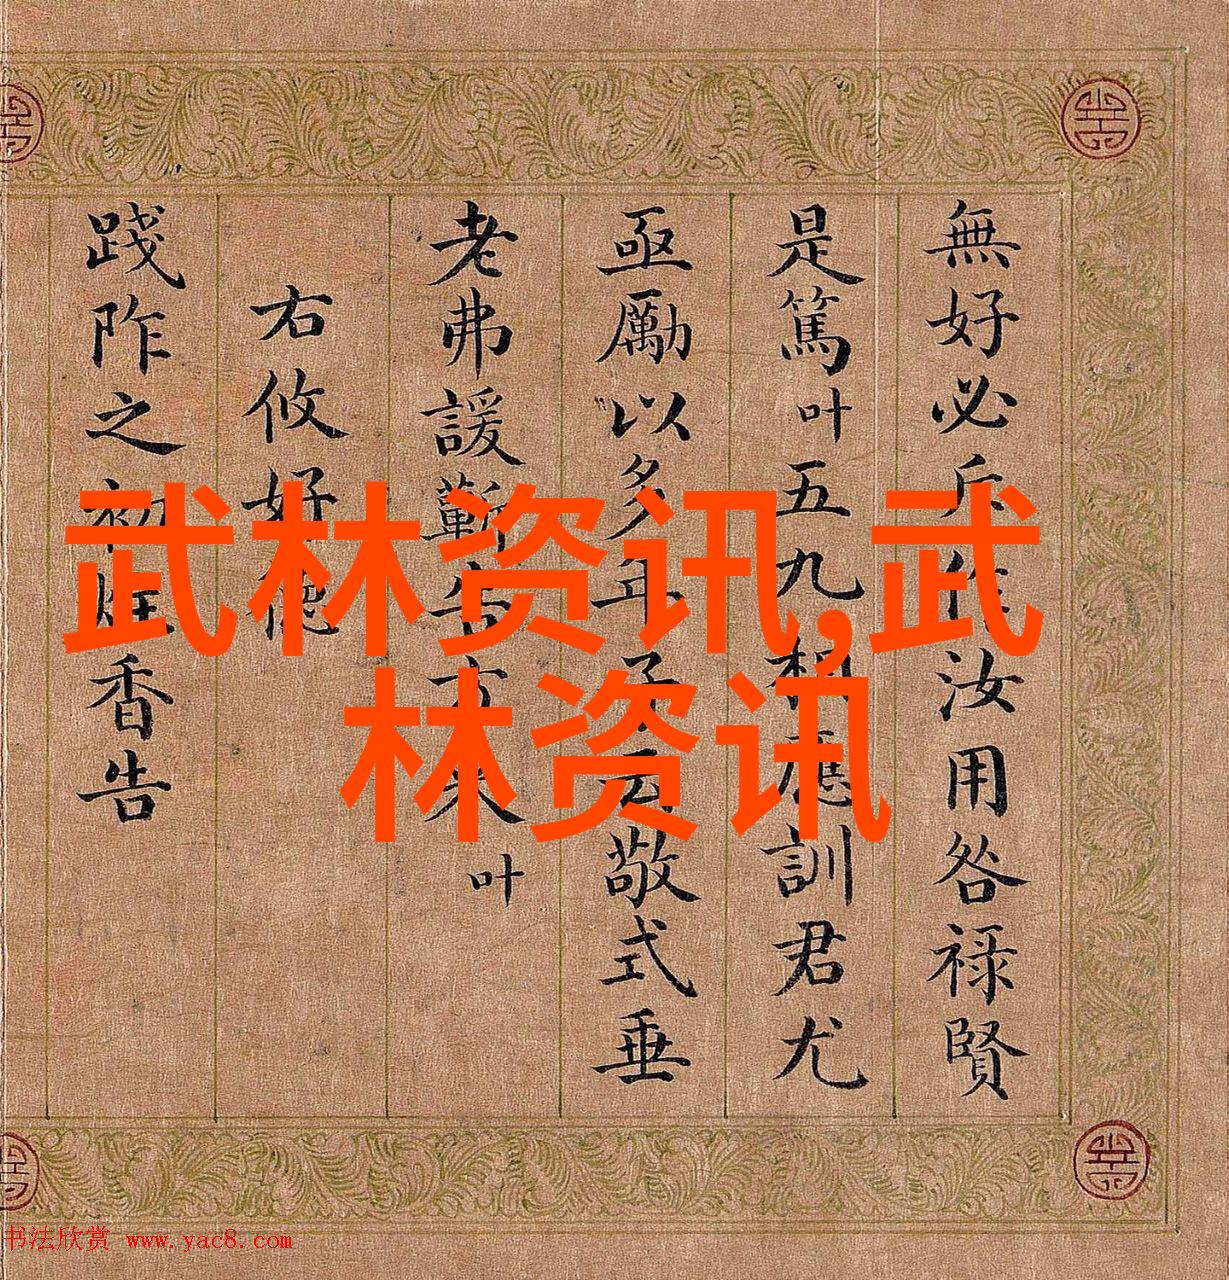 無好必斥作汝用咎祿賢
是篤叶五九相應訓君尤
亟勵以多年予云敬式垂
老弗諼蘄告方來叶
右攸好德
踐阼之初炷香告
武林资讯,武
林资讯
书法欣赏 www.yac8.com